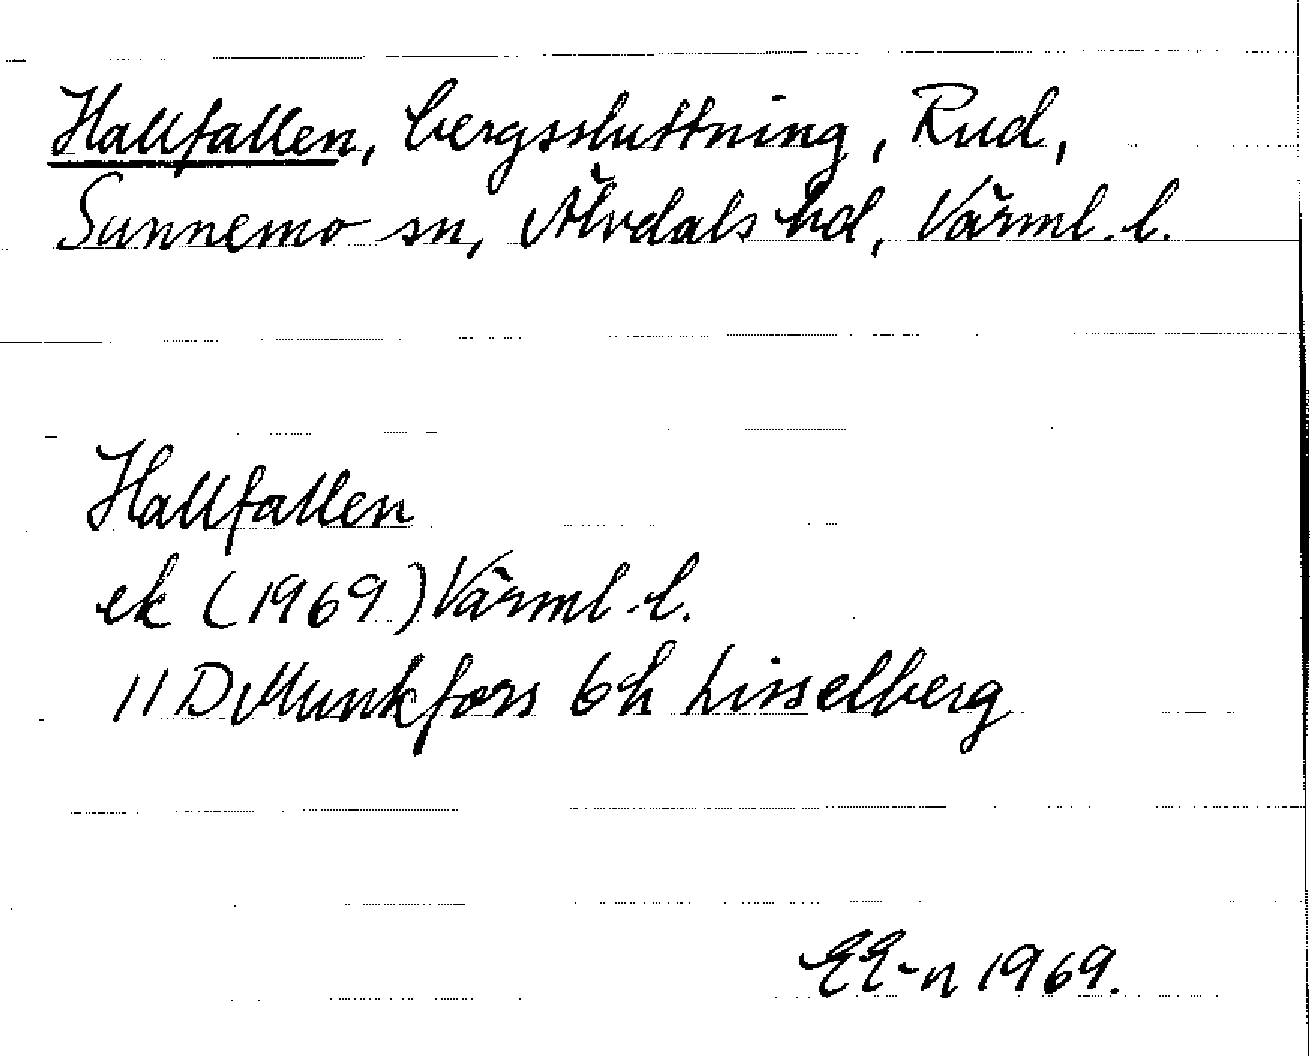 Hallfallen, bergssluttning, Rud,
Sunnemo sn, Älvdals hd, Värml. l.
Hallfallen
ek (1969) Värml. l.
11 D Munkfors 6h Lisselberg
EE-n 1969.